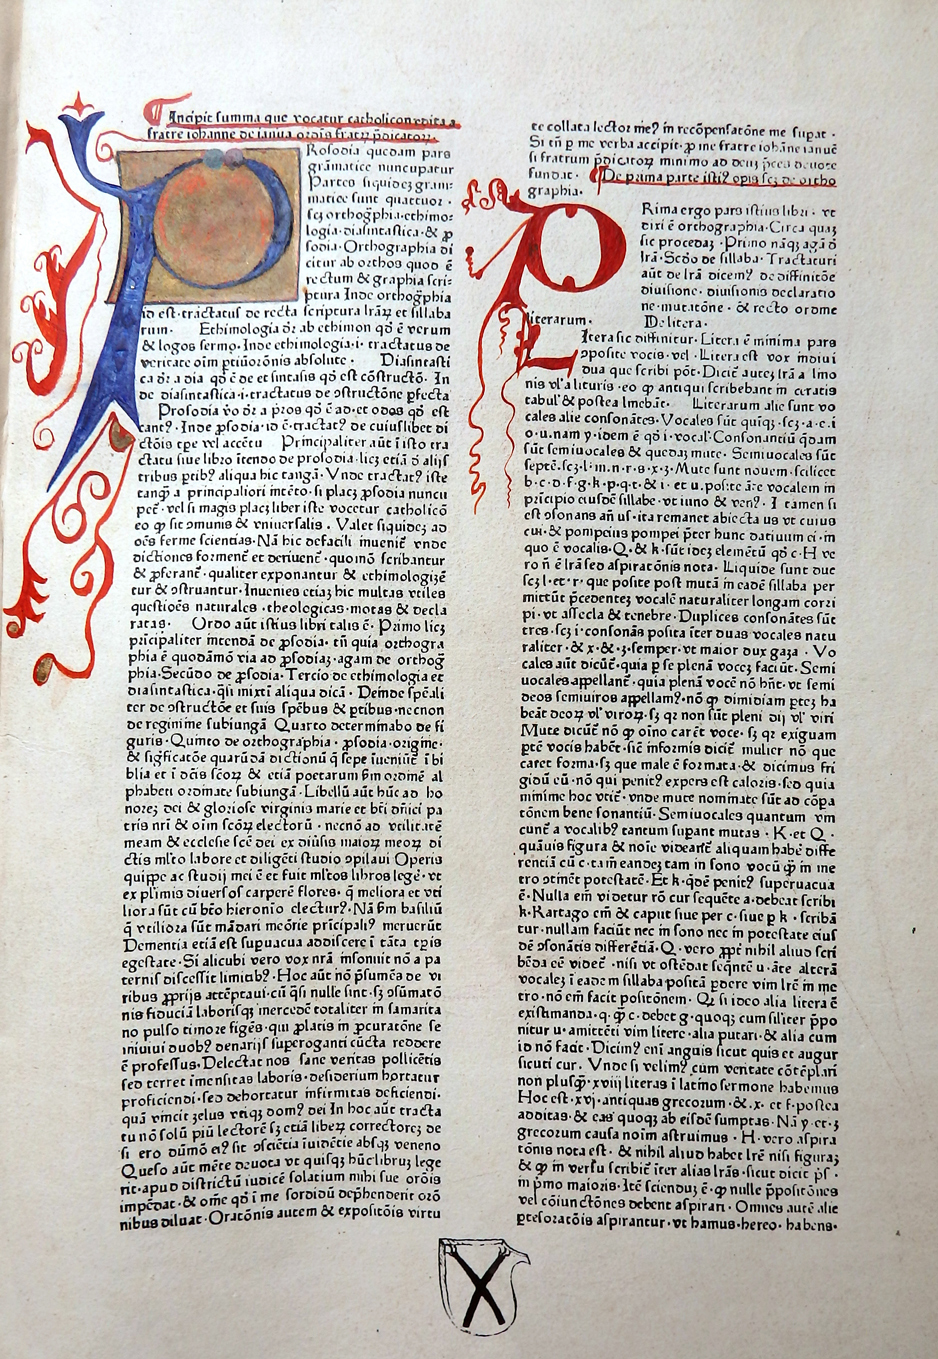 Incipit summa que vocatur catholicon edita a
fratre iohanne de ianua ordis fratrꝝ p̄dicatoꝝ
Rosodia quedam pars
grāmatice nuncupatur
Partes siquidez gram⸗
matice sunt quattuor ·
sez orthog̃phia·ethimo⸗
logia·diasintastica·& ꝓ
sodia·Orthographia di
citur ab orthos quod ē
rectum & graphia scri⸗
ptura Inde orthog̃phia
id est·tractatus de recta scriptura lr̄aꝝ et sillaba
rum· Ethimologia dr̄ ab ethimon qd̄ ē verum
& logos sermo·Inde ethimologia·i· tractatus de
veritate oīm ptiū orōnis absolute · Diasintasti
ca dr̄ a dia qd̄ ē de et sintasis qd̄ est cōstructō· In
de diasintastica·i·tractatus de ꝯstructōne ꝑfecta
Prosodia v̄o dr̄ a pros qd̄ ē ad·et odos qd̄ est
cant⁹· Inde ꝓsodia·id ē·tractat⁹ de cuiuslibet di
ctōis tꝑe vel accētu Principaliter aūt ī isto tra
ctatu siue libro ītendo de prosodia·licꝫ etiā d̄ alijs
tribus ptib⁹ aliqua hic tangā·Vnde tractat⁹ iste
tanqͣ a principaliori intēto·si placꝫ ꝓsodia nuncu
pet̄·vel si magis placꝫ liber iste vocetur catholicō
eo ꝙ sit ꝯmunis & vniuersalis · Valet siquidez ad
oēs ferme scientias·Nā hic de facili inueniet̄ vnde
dictiones forment̄ et deriuent̄ ·quomō scribantur
& ꝓferant̄·qualiter exponantur & ethimologizē
tur & ꝯstruantur·Inuenies etiaꝫ hic multas vtiles
questiōes naturales ·theologicas·motas & decla
ratas· Ordo aūt istius libri talis ē· Primo licꝫ
pricīpaliter intendā de ꝓsodia· tn̄ quia orthogra
phia ē quodāmō via ad ꝓsodiaꝫ·agam de orthog̃
phia·Secūdo de ꝓsodia·Tercio de ethimologia et
diasintastica·q̄si mixtī aliqua dicā · Deinde spēali
ter de ꝯstructōe et suis spēbus & ptibus·necnon
de regimine subiungā Quarto determinabo de fi
guris·Quinto de orthographia · ꝓsodia·origine·
& significatōe quarūdā dictionū q̄ sepe īueniūt̄ ī bi
blia et ī dc̄is sc̄oꝝ & etiā poetarum ẜm ordinē al
phabeti ordinate subiungā·Libellū aūt hūc ad ho
norez dei & gloriose virginis marie et bt̄i dn̄ici pa
tris nr̄i & oīm sc̄oꝝ electorū · necnō ad vtilitatē
meam & ecclesie sc̄e dei ex diūsis maioꝝ meoꝝ di
ctis ml̄to labore et diligēti studio ꝯpilaui Operis
quippe ac studij mei ē et fuit ml̄tos libros lege̅· vt
ex pl'imis diuersos carpere̅ flores· q̄ meliora et vti
liora sūt cū bt̄o hieronio electur⁹·Nā ẜm basiliū
q̄ vtiliora sūt mādari meōrie prīcipali⁹ meruerūt
Dementia etiā est supuacua addiscere ī tāta tꝑis
egestate·Si alicubi vero vox nrā insonuit nō a pa
ternis discessit limitib⁹·Hoc aūt nō p̄sumēs de vi
ribus ꝓprijs attēptaui·cū q̄si nulle sint·sꝫ ꝯsūmatō
nis fiduciā laborisqꝫ mercedē totaliter in samarita
no pulso timore figēs·qui ꝓlatis in ꝑcuratōne se
miuiui duob⁹ denarijs superoganti cūcta reddere
ē professus·Delectat nos sane veritas pollicētis
sed terret īmensitas laboris·desiderium hortatur
proficiendi·sed dehortatur infirmitas deficiendi·
quā vincit zelus vtiqꝫ dom⁹ dei In hoc aūt tracta
tu nō solū piū lectorē sꝫ etiā liberꝫ correctorez de
si ero dūmō ei⁹ sit ꝯsciētia īuidētie absqꝫ veneno
Queso aūt mēte deuota vt quisqꝫ hūc librūꝫ lege
rit·apud districtū iudicē solatium mihi sue orōis
impēdat·& om̄e qd̄ ī me sordidū dep̄henderit orō
nibus diluat·Oratōnis autem & expositōis virtu
te collata lector me⁹ in recōpensatōne me supat ·
Si tn̄ p me verba accipit·ꝓ me fratre iohāne ianuē
si fratrum p̄dicatoꝝ minimo ad deū preces deuote
fundat · De prima parte isti⁹ opis sꝫ de ortho
graphia·
Rima ergo pars istius libri· vt
dixi ē orthographia·Circa quaꝫ
sic procedaꝫ ·Primo nāqꝫ agā d̄
lrā·Scdō de sillaba· Tractaturi
aūt de lrā dicem⁹ de diffinitōe
diuisione· diuisionis declaratio
ne·mutatōne · & recto ordine
literarum· De litera·
Litera sic diffinitur·Litera ē minima pars
ꝯposite vocis·vel ·Litera est vox indiui
dua que scribi pōt·Dicit̄ autez lrā a lino
nis vl' a lituris·eo ꝙ antiqui scribebant in ceratis
tabul' & postea linebāt· Literarum alie sunt vo
cales alie consonātes·Vocales sūt quīqꝫ·sꝫ·a·e·i
o·u·nam y·idem ē qd̄ i·vocal'·Consonantiū q̄dam
sūt semiuocales & quedaꝫ mute· Semiuocales sūt
septē·sꝫ·l·m·n·r·s·x·z·Mute sunt nouem·scilicet
b·c·d·f·g·k·p·q·t·& i· et u·posite āte vocalem in
prīcipio eiusdē sillabe·vt iuno & ven⁹· I tamen si
est ꝯsonans an̄ us·ita remanet abiecta us vt cuius
cui·& pompeius pompei preter hunc datiuum ci·in
quo ē vocalis·Q·& k·sūt idez elemētū qd̄ c·H ve
ro n̄ ē lrā sed aspiratōnis nota· Liquide sunt due
scꝫ l·et·r·que posite post mutā in eadē sillaba per
mittūt p̄cedentez vocalē naturaliter longam corri
pi·vt assecla & tenebre·Duplices consonātes sūt
tres·sꝫ i·consonās posita īter duas vocales natu
raliter·& x·& ·z·semper·vt maior dux gaza · Vo
cales aūt dicūt̄·quia p se plenā vocez faciūt· Semi
uocales appellant̄· quia plenā vocē nō hn̄t·vt semi
deos semiuiros appellam⁹·nō ꝙ dimidiam ptꝫ ha
beāt deoꝝ vl' viroꝝ·sꝫ qꝛ non sūt pleni dij vl' viri
Mute dicūt̄ nō ꝙ oīno carēt voce·sꝫ qꝛ exiguam
ptē vocis habēt·sic̄ informis dicit̄ mulier nō que
caret forma·sꝫ que male ē formata·& dicimus fri
gidū eū·nō qui penit⁹ expers est caloris·sed quia
minime hoc vtit̄·vnde mute nominate sūt ad cōpa
tōnem bene sonantiū·Semiuocales quantum vin
cunt̄ a vocalib⁹ tantum supant mutas · K·et Q ·
quāuis figura & noīe videant̄ aliquam habē diffe
rentiā cū c·tam̄ eandeꝫ tam in sono vocū qͣꝫ in me
tro ꝯtinēt potestatē·Et k·qdē penit⁹ superuacua
ē·Nulla em̄ videtur rō cur sequēte a·debeat scribi
k·Kartago em̄ & caput siue per c·siue p k · scribā
tur·nullam faciūt nec in sono nec in potestate eius
dē ꝯsonātis differētiā·Q·vero ꝓpt̄ nihil aliud scri
bēda eē videt̄ ·nisi vt ostēdat seq̄ntē u·āte alterā
vocaleꝫ ī eadē sillaba positā ꝑdere vim lrē in me
tro·nō em̄ facit positōnem· Qꝛ si ideo alia litera ē
existimanda·q·ꝙ c·debet g·quoqꝫ cum sil'iter p̄po
nitur u·amittēti vim litere·alia putari·& alia cum
id nō facit·Dicim⁹ eni anguis sicut quis et augur
sicuti cur·Vnde si velim⁹ cum veritate cōtēplari
non plusqͣꝫ·xviij literas ī latino sermone habemus
Hoc est·xvj·antiquas grecorum·&·x· et f·postea
additas·& eas quoqꝫ ab eisdē sumptas·Nā y·et·z
grecorum causa noīm astruimus · H·vero aspira
tōnis nota est· & nihil aliud habet lrē nisi figuraꝫ
& ꝙ in versu scribit̄ īter alias lrās·sicut dicit ps̄·
in p̄mo maioris·Itē sciendu ē·ꝙ nulle p̄positōnes
vel cōiunctōnes debent aspirari· Omnes autē alie
ptes oratōis aspirantur·vt hamus·hereo·habens·